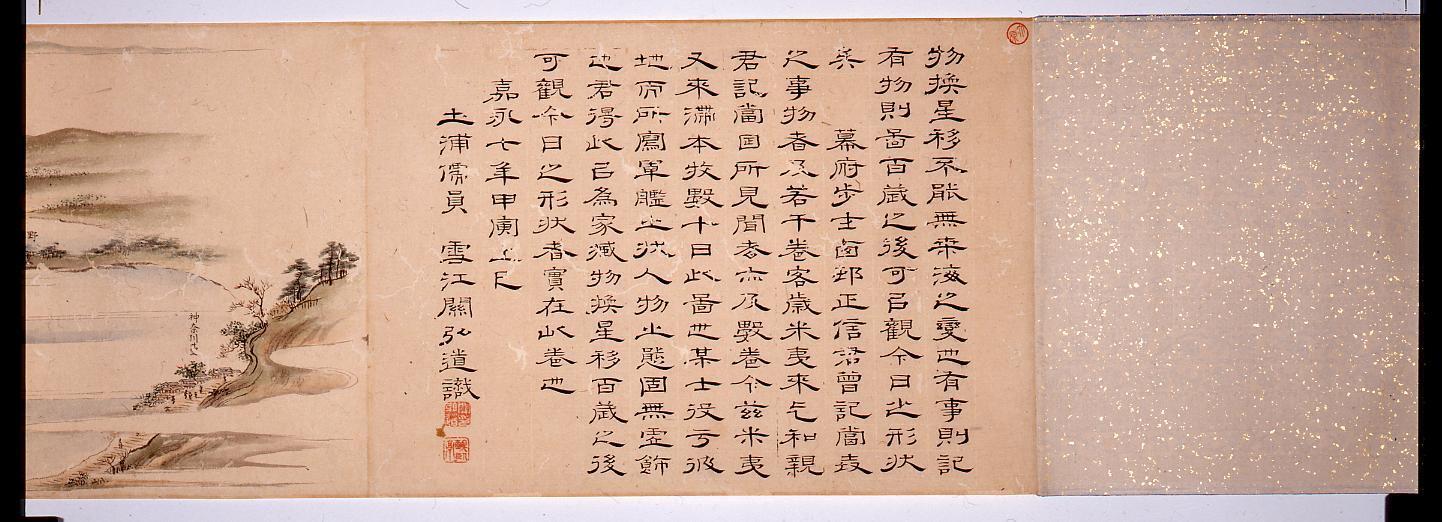 物換星移不能無桒海之變也有事則記
有物則啚百歳之後可㠯觀今日之形状
矣　　幕府步士鹵邨正信君曾記當
之事物者及若干卷客歳米夷來乞和親
君記當因所見聞者亦及數卷今茲米夷
又來滯本牧數十日此啚世某士役于彼
地而所寫軍艦之状人物之態固無虛飾
也君得此㠯為家藏物換星移百歳之後
可觀今日之形状者實在此卷也
嘉永七年甲寅
土浦儒員　雪江關弘道識
神奈川
野